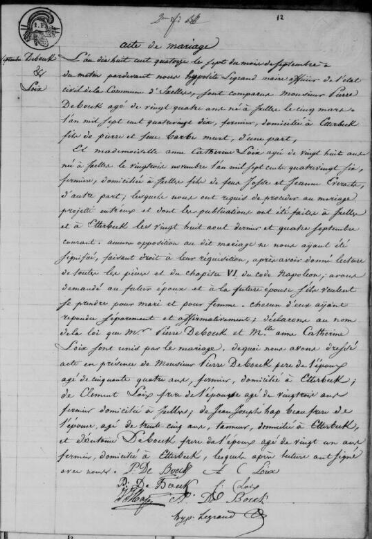 12
acte de mariage
L'an dix huit cent quatorze le sept du mois de septembre
du matin pardevant nous hyppolite Legrand maire officier de l'état
civil de la Commune d'Ixelles, sont comparus Monsieur Pierre
De Boeck agé de vingt quatre ans né à Ixelles le cinq mars
l'an mil sept cent quatrevingt dix, fermier, domicilié à Etterbeek
fils de pierre et de barbe, d'une part,
Et mademoiselle anne Catherine Loix agé de vingt huit ans
né à Ixelles le vingt trois novembre l'an mil sept cent quatrevingt six,
fermière, domiciliée à Ixelles fille de feux et Jeanne
d'autre part, lesquels nous ont requis de procéder au mariage
projetté entr'eux et dont les publications ont été faites à Ixelles
et à Etterbeek les vingt huit aout dernier et quatre septembre
courant. aucune opposition au dit mariage ne nous ayant été
signifiée, faisant droit à leur réquisition, après avoir donné lecture
de toutes les pièces et du chapitre VI du code Napoléon, avons
demandé au futur époux et à la future épouse s'ils veulent
se prendre pour mari et pour femme. chacun d'eux ayant
répondu séparement et affirmativement; déclarons au nom
de la loi que Mr. Pierre De Boeck et Mlle anne Catherine
Loix sont unis par le mariage, de quoi nous avons dressé
acte en présence de Monsieur Pierre De Boeck père de l'époux
agé de cinquante quatre ans, fermier, domicilié à Etterbeek;
de Clement Loix frère de l'épouse agé de vingt trois ans
fermier domicilié à Ixelles; de Jean Joseph hap beau frère de
l'épouse, agé de trente cinq ans, tanneur, domicilié à Etterbeek,
et De Boeck frère de l'époux agé de vingt un ans
fermier, domicilié à Etterbeek, lesquels après lecture ont signé
avec nous. P. De Boeck A C Loix
P. De Boeck C Loix
De Boeck
hyp. Legrand
De Boeck
&
Loix